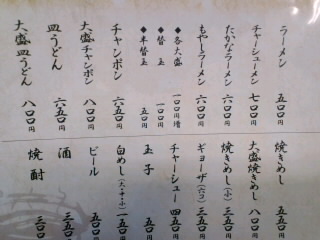 ラーメン 五〇〇円
チャーシューメン 七〇〇円
たかなラーメン 六〇〇円
もやしラーメン 六〇〇円
◆各大盛 一〇〇円増
◆替玉 一〇〇円
◆木替玉 五〇円
チャンポン 六五〇円
大盛チャンポン 八〇〇円
皿うどん 六五〇円
大盛皿うどん 八〇〇円
焼きめし 五五〇円
大盛焼きめし 八〇〇円
焼きめし(小) 三五〇円
ギョーザ(六ヶ) 三五〇円
チャーシュー 四五〇円
玉子 五〇円
白めし(大・中・小) 一五〇
ビール 五五〇
酒 三五〇
焼酎 三〇〇